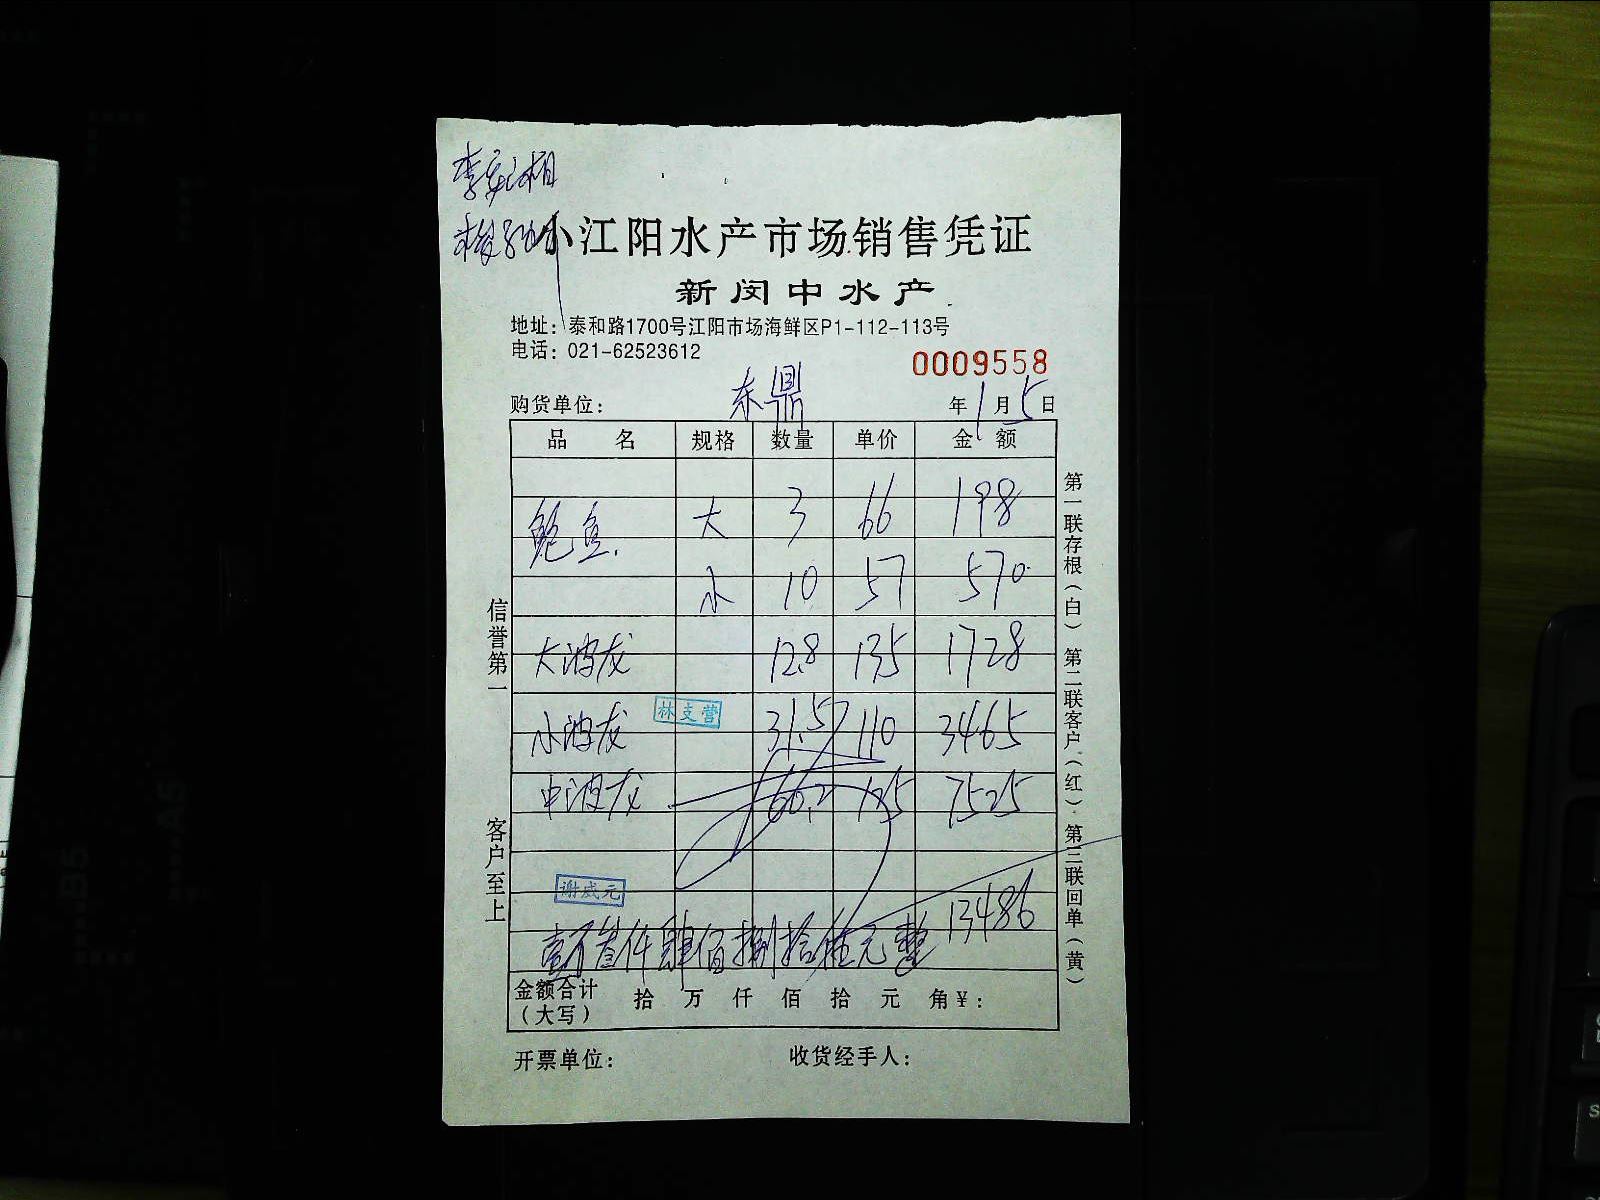 小江阳水产市场销售凭证
新闵中水产
地址：泰和路1700号江阳市场海鲜区P1-112-113号
电话：021-62523612
0009558
购货单位： 东鼎 年 1 月 5 日
品 名 规格 数量 单价 金 额
鲍鱼 大 3 66 198
小 10 57 570
大波龙 12.8 135 1728
小波龙 31.5 110 3465
林支营
中波龙 60.2 125 7525
谢成元
13486
壹万叁仟肆佰捌拾 元整
金额合计（大写） 拾 万 仟 佰 拾 元 角 ¥：
开票单位： 收货经手人：
信誉第一 客户至上
第一联存根（白）第二联客户（红）第三联回单（黄）
A5
B5